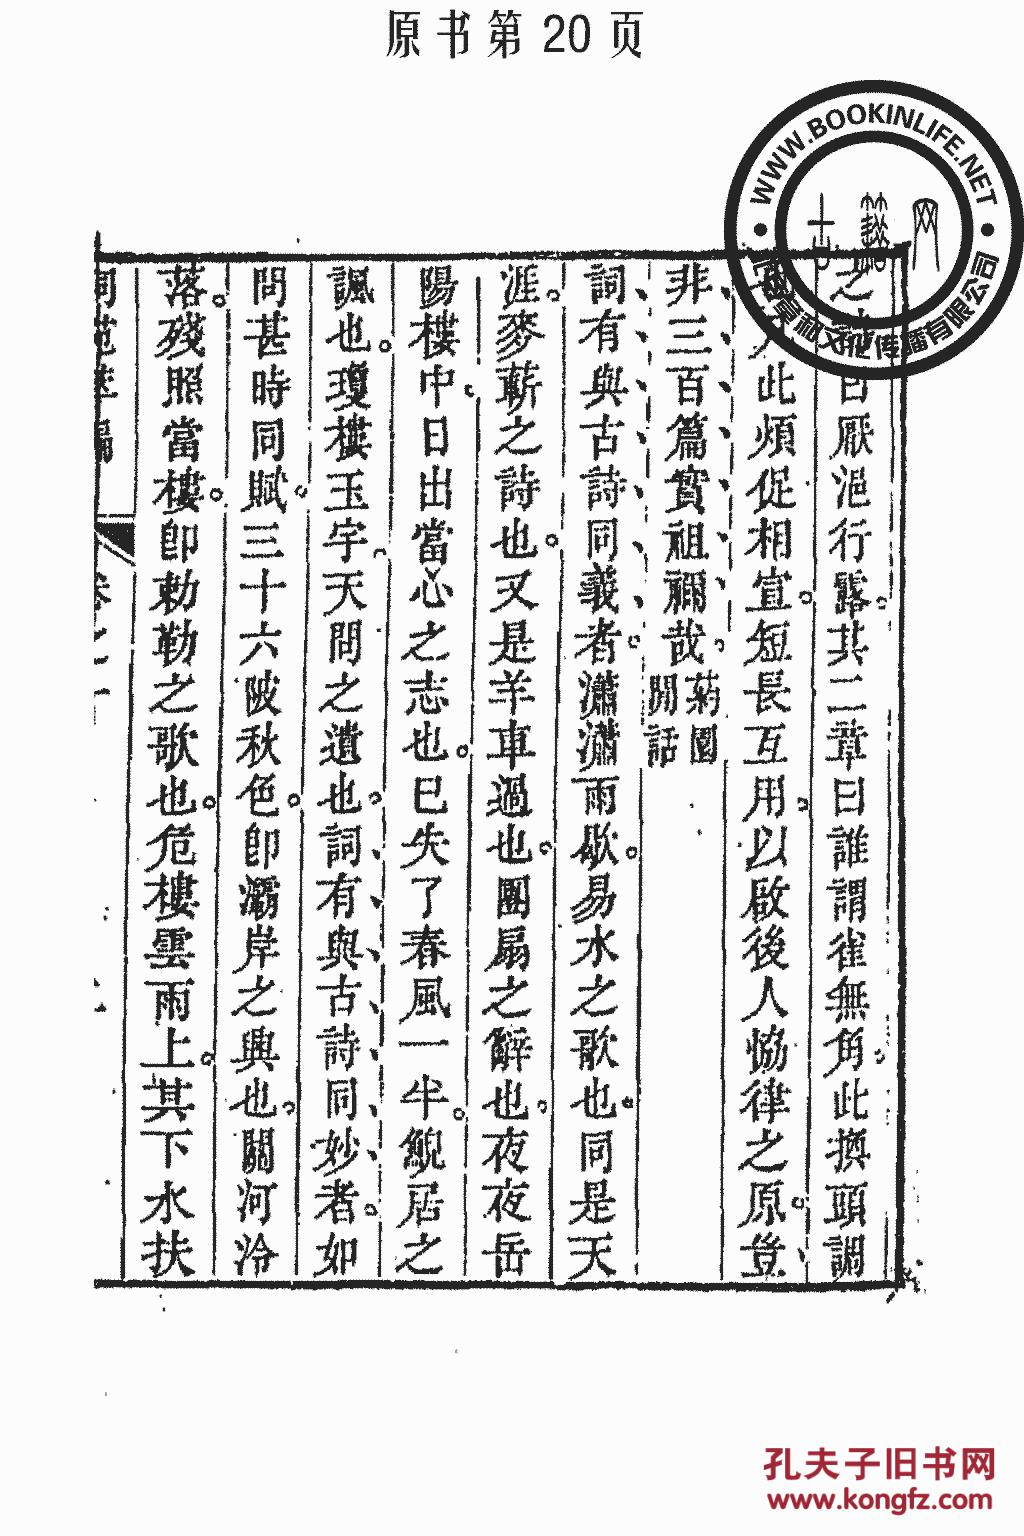 原书第20页
WWW.BOOKINLIFE.NET
之詩曰厭浥行露其二章曰誰謂雀無角此換頭調
此煩促相宣短長互用以啟後人協律之原豈
非三百篇實祖禰哉菊園閒話
詞有與古詩同義者瀟瀟雨歇易水之歌也同是天
涯麥蘄之詩也又是羊車過也團扇之辭也夜夜岳
陽樓中日出當心之志也已失了春風一半鯢居之
諷也瓊樓玉宇天問之遺也詞有與古詩同妙者如
問甚時同賦三十六陂秋色卽灞岸之興也關河冷
落殘照當樓卽敕勒之歌也危樓雲雨上其下水扶
詞苑萃編 卷之一
孔夫子旧书网
www.kongfz.com